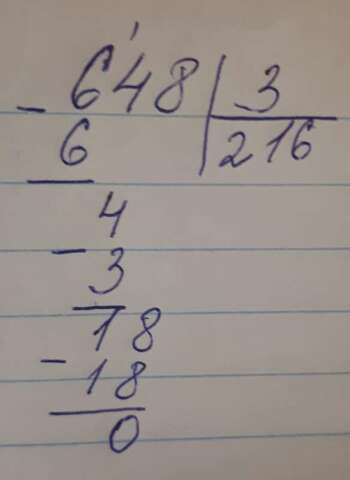 - 648 3
6 216
4
- 3
18
- 18
0